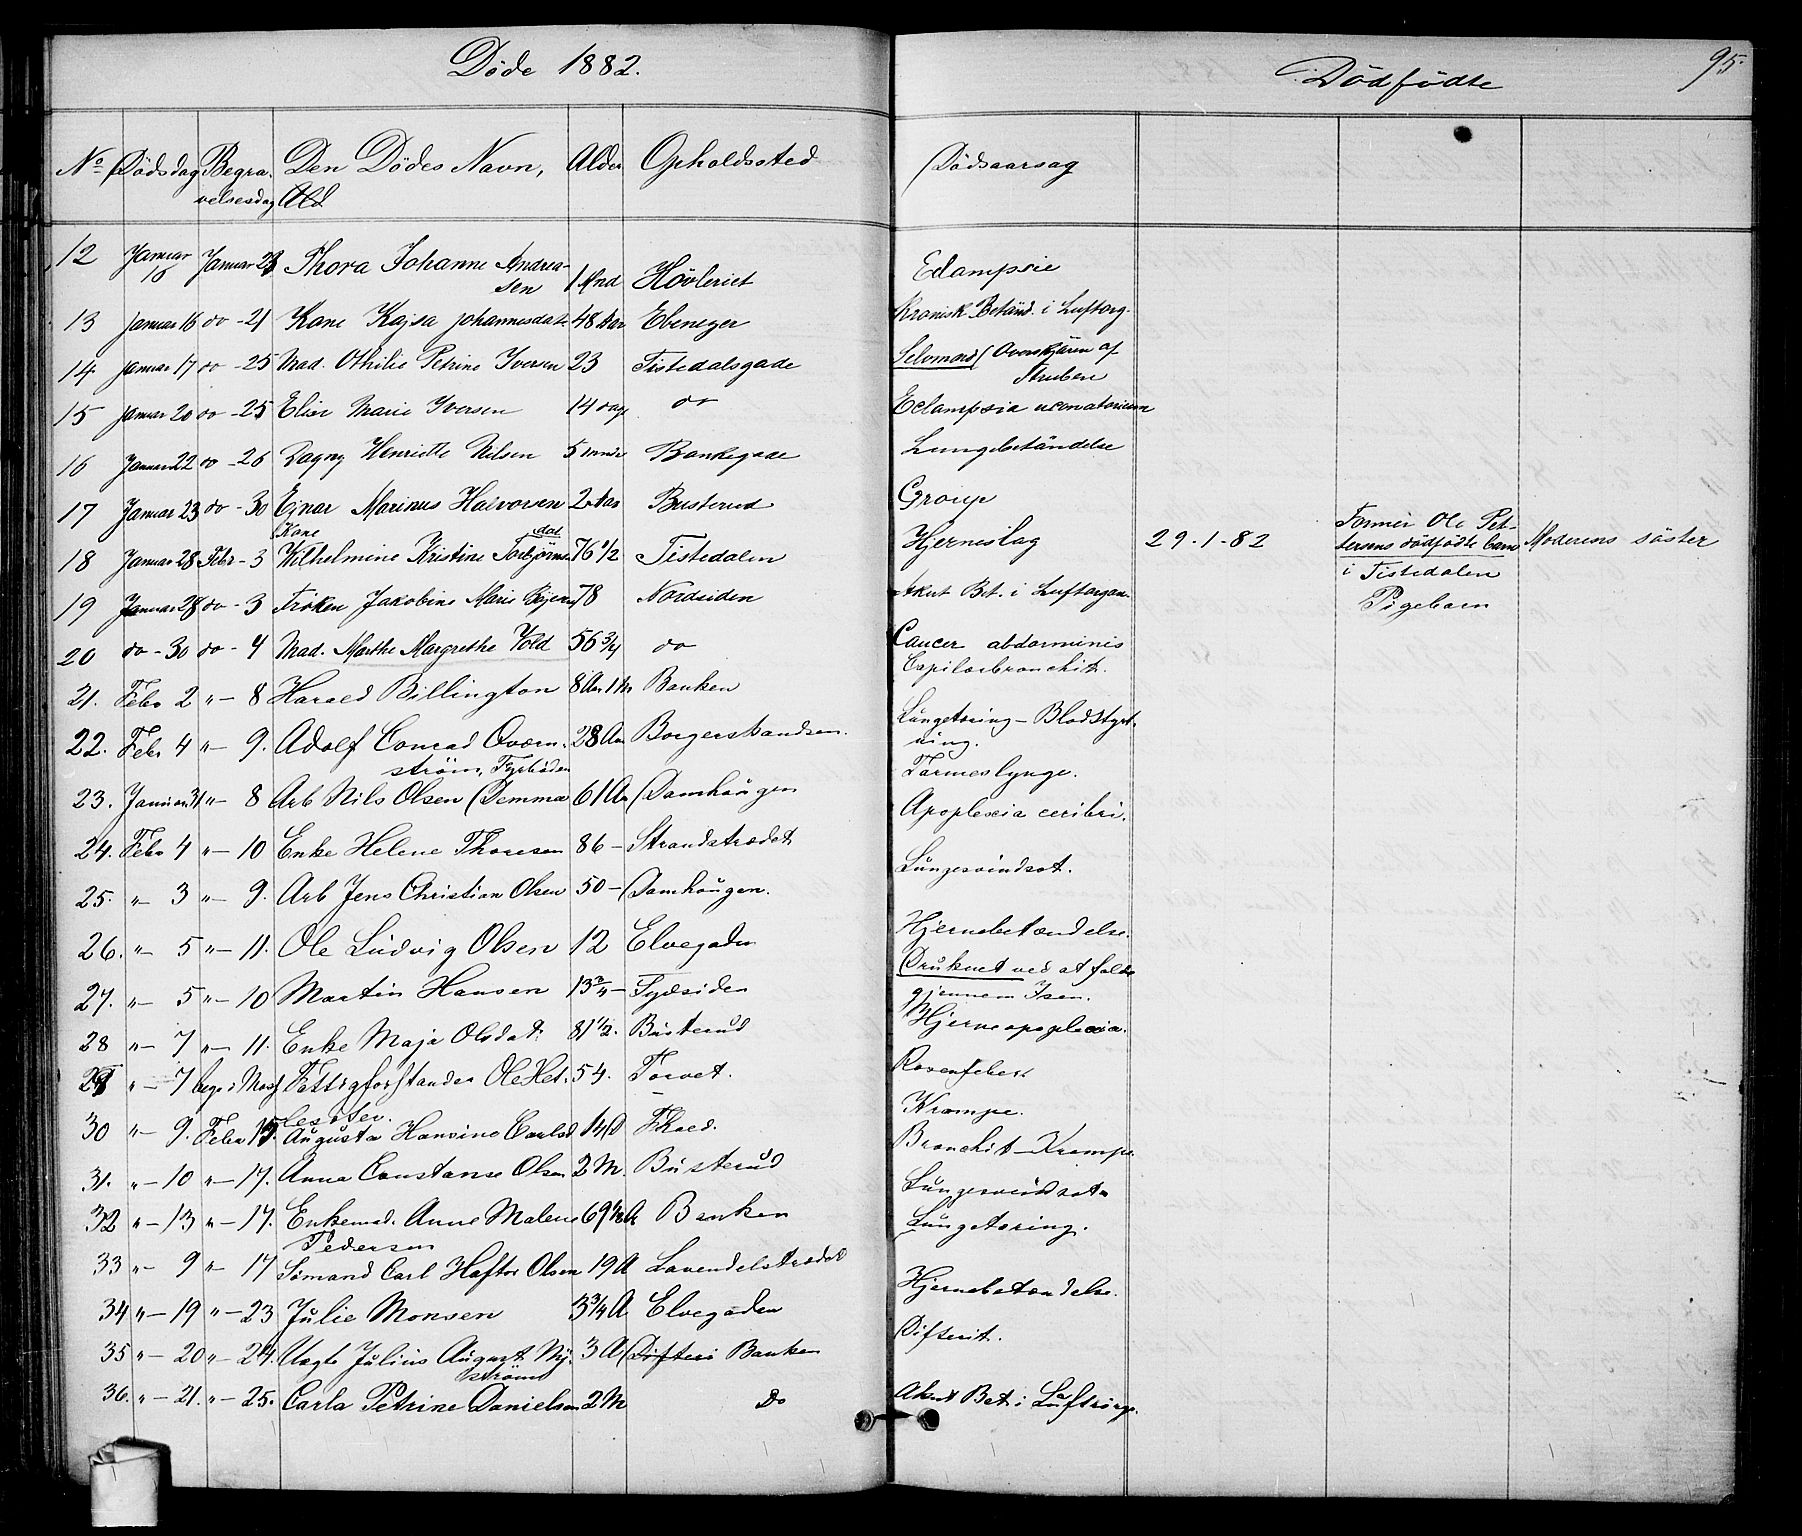 Døde 1882.
Dödfödte
95
No Dödsdag Begra- Den Dödes Navn, Alder Opholdssted Dödsaarsag
velsesdag
12 Januar 16 Januar 23 Thora Johanne Andrea- 1 Mnd Hövleriet Eclampsie
sen
13 Januar 16 do - 21 Kone Kajsa Johannesdat. 48 Aar Ebeneger Kronisk Betänd. i Luftorg.
14 Januar 17 do - 25 Mad. Othilie Petrine Iversen 23 Tistedalsgade Selvmord (Overskjären af
Struben
15 Januar 20 do - 25 Elise Marie Iversen 14 dage do Eclampsia neonatorum
16 Januar 22 do - 26 Dagny Henriette Nilsen 5 mndr Bankegade Lungebetändelse
17 Januar 23 do - 30 Ejnar Marinus Halvorsen 2 Aar Busterud Group
Kone dat
18 Januar 28 Febr - 3 Wilhelmine Kristine Torbjörns 76 1/2 Tistedalen Hjerneslag 29-1-82 Formèr Ole Pet- Moderens söster
tersens dödfödte barn
i Tistedalen
Pigebarn
19 Januar 28 do - 3 Fröken Jakobine Marie 78 Nordsiden Akut Bet. i Luftorgan.
20 do - 30 do - 4 Mad. Marthe Margrethe Vold 56 3/4 do Cancer abdominis
21. Febr 2 " - 8 Harald Billington 8 Aar 1 M Banken Capilærbronchit.
22. Febr 4 " - 9. Adolf Conrad Overn- 28 Aar Borgerskandsen. Lungetæring - Blodstyrt-
ström, Fyrböder ning.
23. Januar 31 " - 8 Arb Nils Olsen (Demma 61 Aar Damhaugen Tarmeslynge.
24. Febr 4 " - 10 Enke Helene Thoresen 86 - Strandstrædet Apoplexia ceribri.
25. " - 3 " - 9. Arb Jens Christian Olsen 50 - Damhougen. Lungesvindsot.
26. " - 5 " - 11. Ole Ludvig Olsen 12 Elvegaden Hjernebetændelse.
27. " - 5 " - 10 Martin Hansen 13 3/4 - Sydsiden Druknet ved at falde
gjennem Isen.
28 " - 7 " - 11. Enke Maja Olsdat. 81 1/2. Busterud Hjerneapoplexia.
29 " - 7 begr i Moss Fattigforstander Ole Het- 54. Torvet. Rosenfeber
lesæter.
30 " - 9. Febr 15. Augusta Hansine Carlsd 14 D Fhoed. Krampe.
31. " - 10 " - 17. Anna Constanse Olsen 2 M. Busterud Bronchit - Krampe
32 " - 13 " - 17. Enkemad. Anne Malene 69 1/2 A Banken Lungesvindsot.
Pedersen
33 " - 9 " - 17 Sömand Carl Haftor Olsen 19 A Lavendelstrædet Lungetæring.
34 " - 19 " - 23 Julie Monsen 3 3/4 A Elvegaden Hjernebetændelse.
35 " - 20 " - 24. Uægte Julius August Ny- 3 A Difteri Banken Difterit.
ström
36. " - 21. " - 25. Carla Petrine Danielsen 2 M Do Akut Bet i Luftrörg.